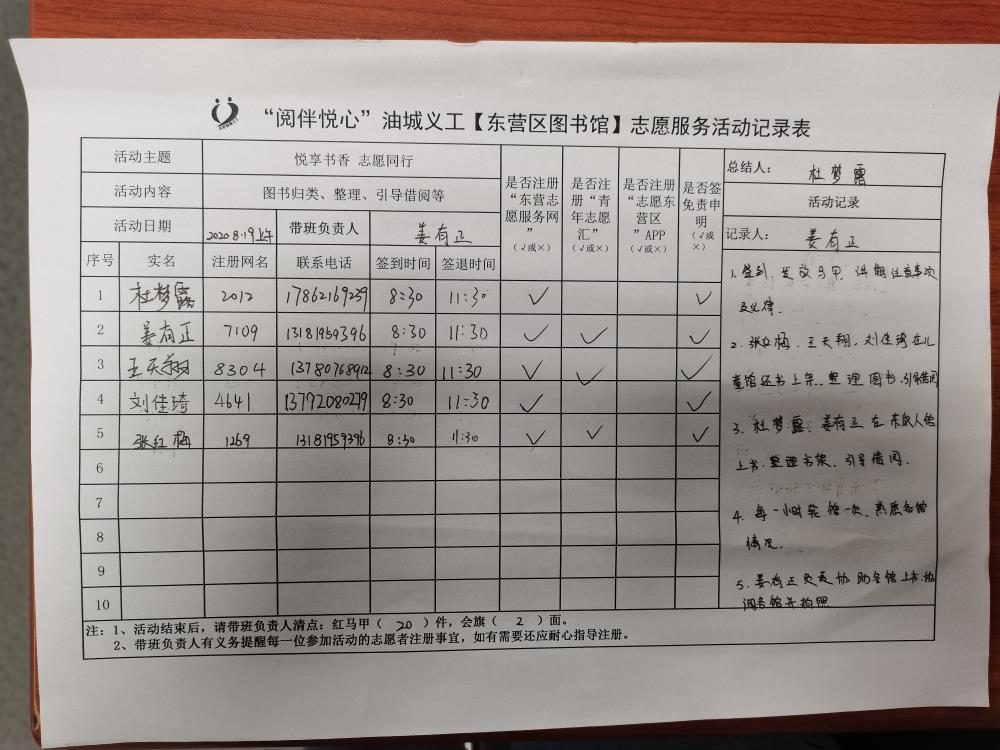 “阅伴悦心”油城义工【东营区图书馆】志愿服务活动记录表
活动主题 悦享书香 志愿同行
活动内容 图书归类、整理、引导借阅等
活动日期 2020.8.19上午 带班负责人 姜有正
序号 实名 注册网名 联系电话 签到时间 签退时间
是否注册“东营志愿服务网”（√或×）
是否注册“青年志愿汇”（√或×）
是否注册“志愿东营区”APP（√或×）
是否签免责申明（√或×）
1 杜梦露 2012 17862169239 8:30 11:30 √ √
2 姜有正 7109 13181959396 8:30 11:30 √ √ √
3 王天翔 8304 13780768912 8:30 11:30 √ √ √
4 刘佳琦 4641 13792080279 8:30 11:30 √ √
5 张红梅 1269 13181959396 8:30 11:30 √ √ √
6
7
8
9
10
总结人： 杜梦露
活动记录
记录人： 姜有正
1. 签到，发放马甲，讲明注意事项
及纪律.
2. 张红梅、王天翔、刘佳琦在儿
童馆还书上架、整理图书、引导借阅
3. 杜梦露、姜有正在成人馆
上书.整理书架、引导借阅.
4. 每一小时轮馆一次、熟悉各馆
情况.
5. 姜有正负责协助各馆上书.协
调各馆并拍照
注：1、活动结束后，请带班负责人清点：红马甲（ 20 ）件，会旗（ 2 ）面。
2、带班负责人有义务提醒每一位参加活动的志愿者注册事宜，如有需要还应耐心指导注册。